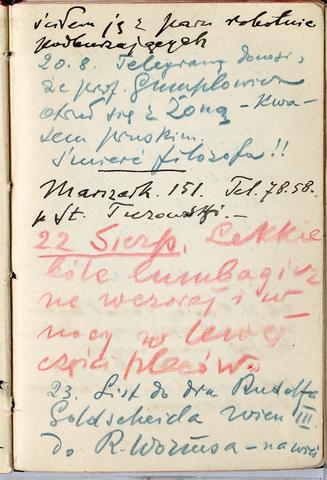 siłem ją z paru robotnic
podburzających
20.8. Telegramy donosi,
że prof. Gumplowicz
otruł się z żoną – kwa-
sem pruskim.
Śmierć filozofa!!
Marszałk. 151. Tel. 78.58.
p St. Turowski. –
22 Sierp. Lekkie
bóle lumbagicz
ne wczoraj i w
nocy w lewej
części pleców.
23. List do dra Rudolfa
Goldscheida Wien III.
do R. Wormsa – na wsi